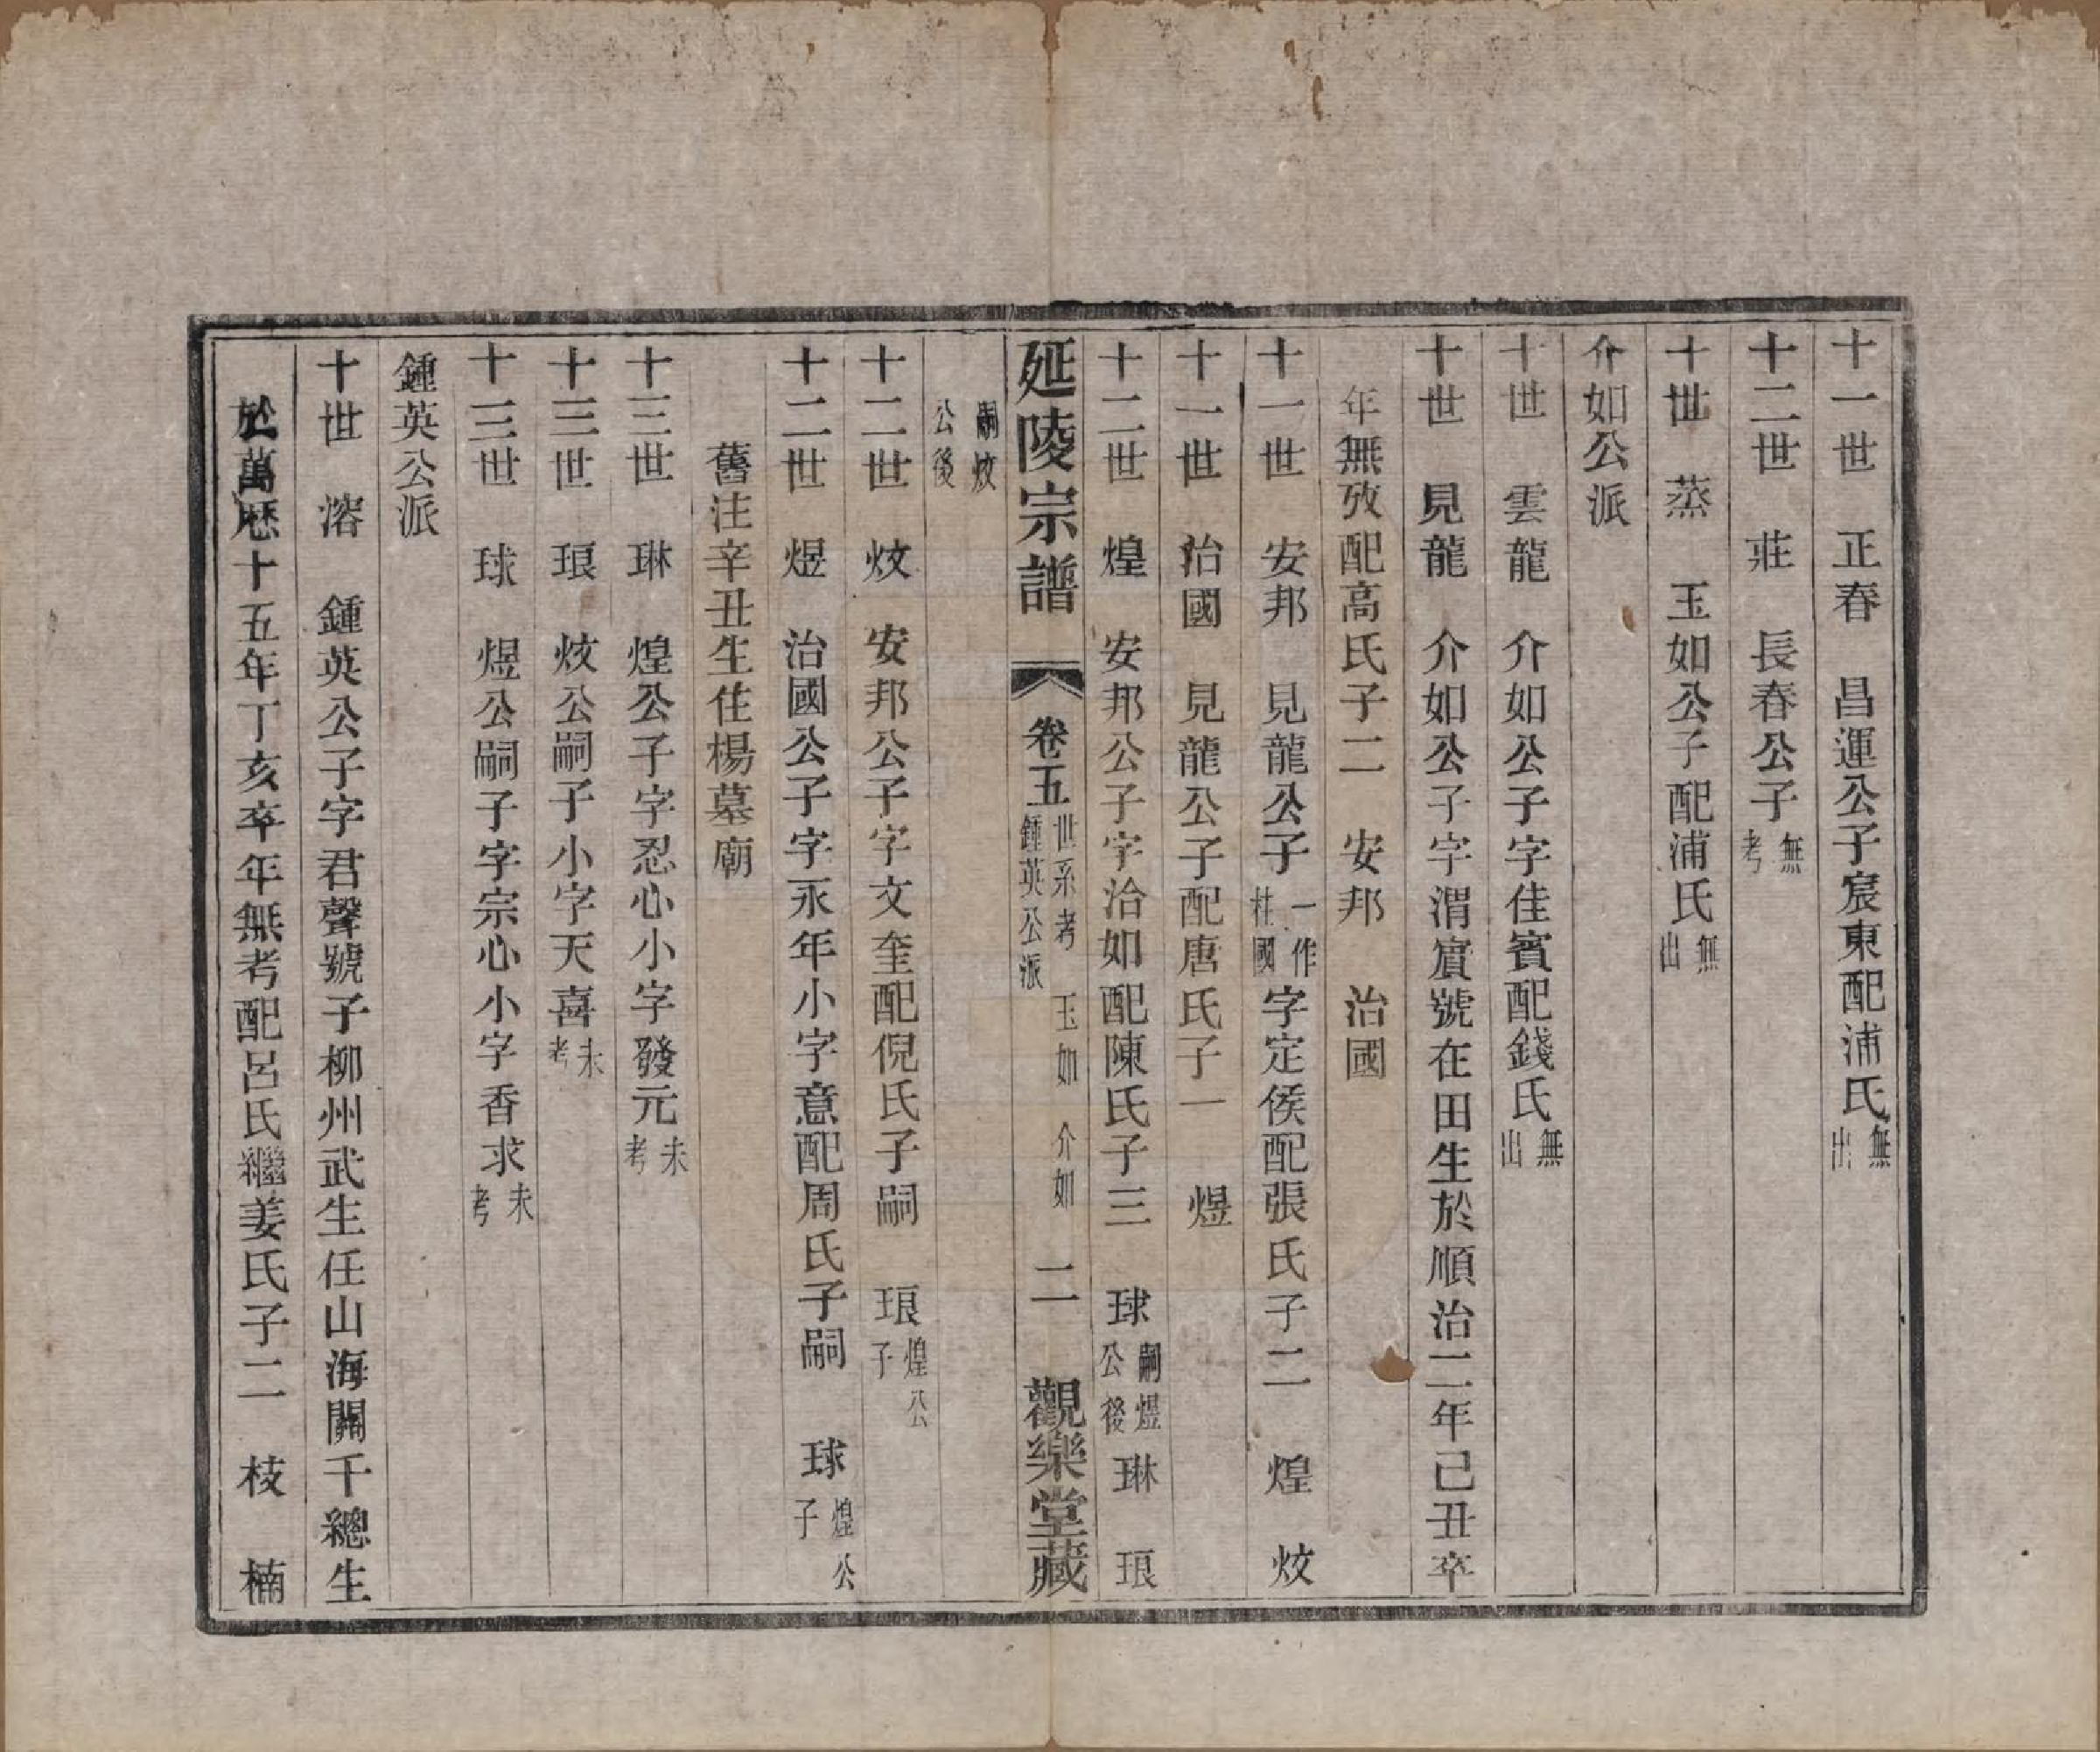 十一世　正春　昌運公子宸東配浦氏無出
十二世　莊　長春公子無考
十世　蒸　玉如公子配浦氏無出
介如公派
十世　雲龍　介如公子字佳賓配錢氏無出
十世　見龍　介如公子字渭賓號在田生於順治二年己丑卒
年無攷配高氏子二　安邦　治國
十一世　安邦　見龍公子一作柱國字定侯配張氏子二　煌　炆
十一世　治國　見龍公子配唐氏子一　煜
十二世　煌　安邦公子字治如配陳氏子三　球嗣煜公後琳　琅
延陵宗譜　卷五世系考　玉如　介如　鍾英公派　二　觀樂堂藏
嗣炆公後
十二世　炆　安邦公子字文奎配倪氏子嗣　琅煌公子
十二世　煜　治國公子字永年小字意配周氏子嗣　球煌公子
舊注辛丑生住楊墓廟
十三世　琳　煌公子字忍心小字發元未考
十三世　琅　炆公嗣子小字天喜未考
十三世　球　煜公嗣子字宗心小字香求未考
鍾英公派
十世　溶　鍾英公子字君聲號子柳州武生任山海關千總生
於萬歷十五年丁亥卒年無考配呂氏繼姜氏子二　枝　楠